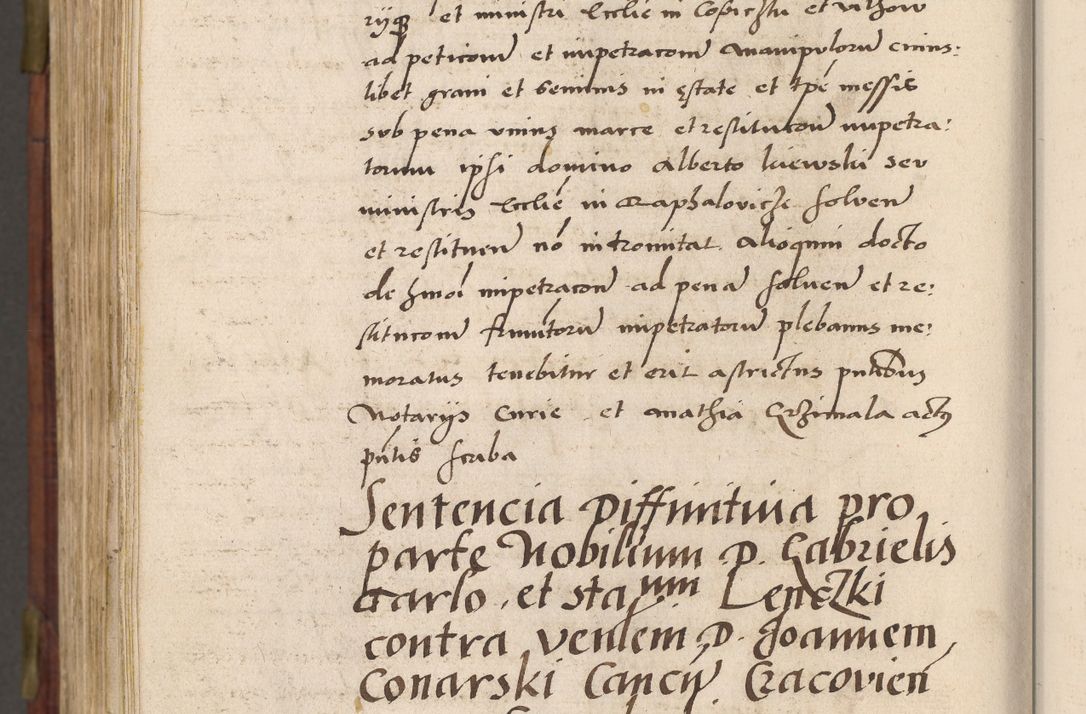 rijqꝫ et ministri Ecclie in
ad peticionẽ et impetracõm manipulorũ cuius:
libet grani et seminis in estate et tpẽ messis
sub pena unius marce et restitucõn impetra:
torum ipsi domino Alberto kiewski seu
ministris Ecclie in Raphalovicze solven
et restituen nõ intromitat. Alioquin docto
de hmõi impetracõn ad penã solven et re:
stitucõm frumtorũ impetratorũ plebanus me:
moratus tenebitur et erit astrictus pntibus
Notarijs Curie et mathia Grzimala actus
pntis scriba
Sentencia Diffinitiva pro
parte Nobilium D. Gabrielis
Carlo et Sta um Lenczki
contra venlem D. Joannem
Conarski Cancij Cracovien